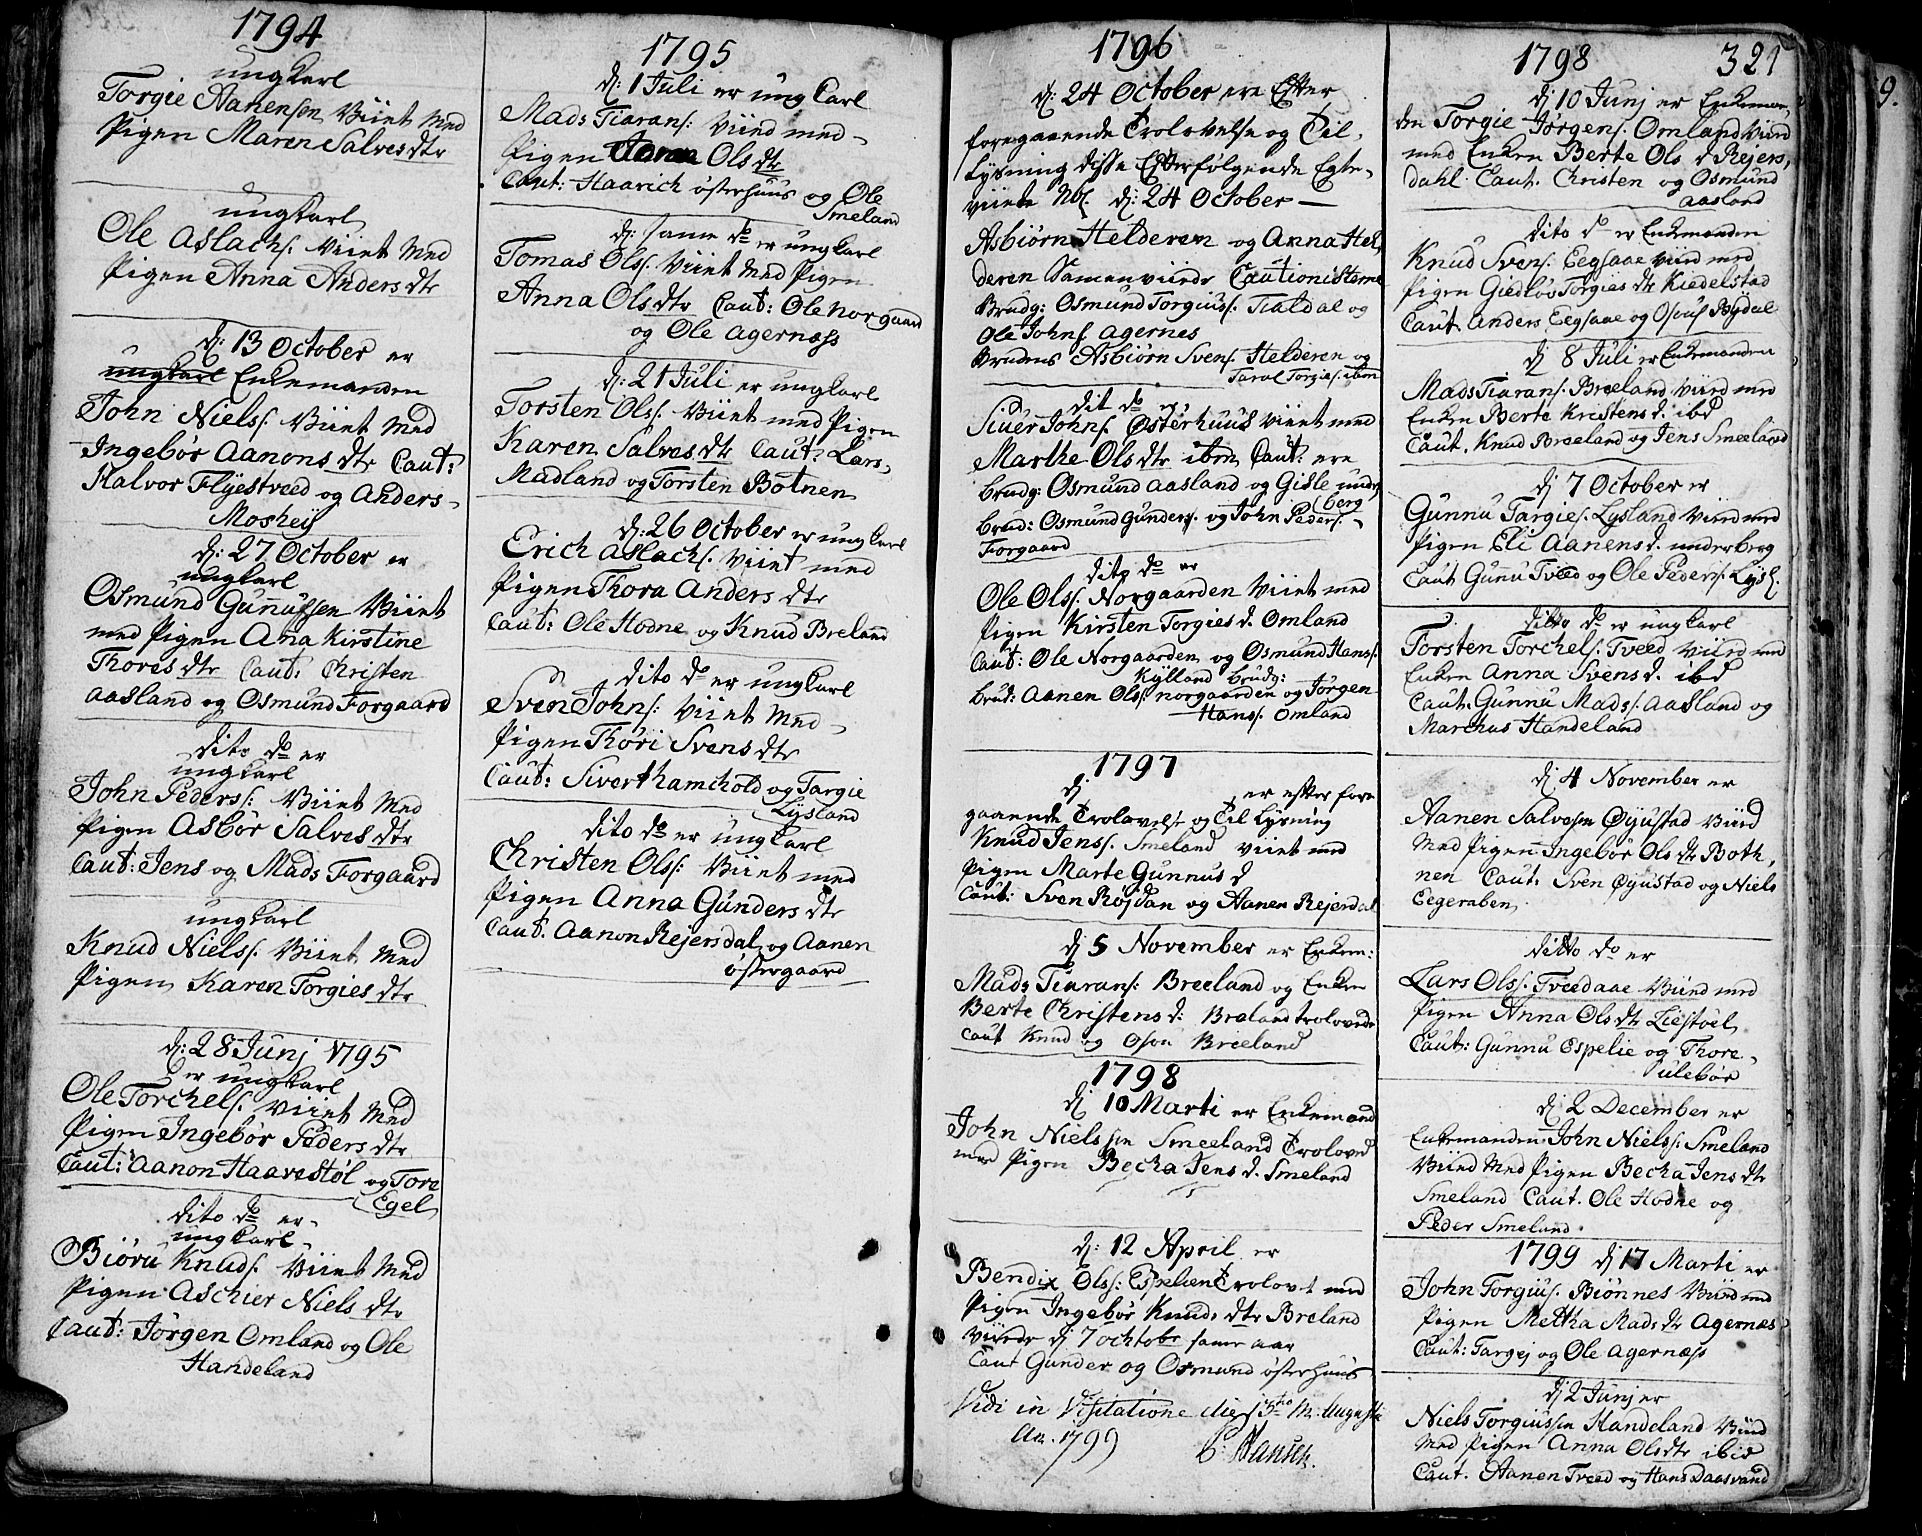 1794
ungkarl
Torgie Aanensøn Viiet Med
Pigen Maren Salves dtr
ungkarl
Ole Aslachs: Viiet Med
Pigen Anna Anders dtr
dj: 13 October er
ungkarl Enkemanden
John Niels: Viiet Med
Ingebør Aanons dtr Caut:
Halvor Flyestveed og Anders
Moshej
dj: 27 October er
ungkarl
Osmund Gunufsen Viiet
med Pigen Ana Kirstine
Thores dtr Caut: Christen
Aasland og Osmund Forgaard
dito do er
ungkarl
John Peders: Viiet Med
Pigen Asbør Salves dtr
Caut: Jens og Mads Forgaard
ungkarl
Knud Niels: Viiet Med
Pigen Karen Torgies dtr
dj: 28 Junj 1795
er ungkarl
Ole Torchels: Viiet Med
Pigen Ingebør Peders dtr
Caut: Aanon Haavestøl og Tore
Egel
dito do er
ungkarl
Biøru Knuds: Viiet Med
Pigen Aschier Niels dtr
Caut: Jørgen Omland og Ole
Handeland
1795
dj: 1 Juli er ungkarl
Mads Tiarans: Viied med
Pigen Ols dtr
Caut: Haarich Østerhuus og Ole
Smeland
dj: samme do er ungkarl
Tomas Ols: Viiet Med Pigen
Anna Ols dtr Caut: Ole Norgaard
og Ole Agernæss
dj: 21 Juli er ungkarl
Torsten Ols: Viiet med Pigen
Karen Salves dtr Caut: Lars
Madland og Torsten Botnen
dj: 26 October er ungkarl
Erich Aslachs: Viiet med
Pigen Thora Anders dtr
Caut: Ole Hodne og Knud Breland
dito do er ungkarl
Sven Johns: Viiet Med
Pigen Thöri Svens dtr
Caut: Sivert hamchold og Targie
Lysland
dito do er ungkarl
Christen Ols: Viiet med
Pigen Anna Gunders dtr
Caut. Aanon Rejersdal og Aanen
østergaard
1796
dj: 24 October ere Efter
foregaaende Trolovelse og Til
Lysning disse Efterfølgende Egte
viiede Nbl. dj: 24 October
Asbiørn Helderen og Anna Hel
deren Samenviiede Cautionisterne
Brudg: Osmund Torgiuss: Tialdal og
Ole Johns: Agernes
Brudens Asbiørn Svens: Helderen og
Taral Torgies: ibm
dit do er
Siver Johns: Østerhuus Viiet med
Marthe Ols dtr ibm Caut: ere
brudg: Osmund Aasland og Gisle under
berg
brud: Osmund Gunders: og John Peders:
Forgaard
dito do er
Ole Ols: Norgaarden Viiet med
Pigen Kirsten Torgies d. Omland
Caut: Ole Norgaarden og Osmund Hans:
Kylland brudg:
brud: Aanen Ols: norgaarden og Jørgen
Hans: Omland
1797
dj er efter fore
gaaende Trolovelse og Til Lysning
Knud Jens: Smeland viiet med
Pigen Marte Gunnus d
Caut: Sven Røjdan og Aanen Rejerdal
dj 5 November er Enkem:
Mads Tiarans: Breeland og Enken
Berte Christens d. Breland trolovede
Caut Knud og Oson Breeland
1798
dj 10 Marti er Enkemand
John Nielssen Smeeland Trolovd
med Pigen Becha Jens d. Smeland
dj: 12 April er
Bendix Ols: Espelien Trolovt med
Pigen Ingebør Knuds dtr Breland
Viiede dj 7 ocktobr samme aar
Caut Gunder og Osmund østerhuus
Vidi in Visitatione die 15to M: Augusti
An. 1799 C: Hansen.
1798 321
dj 10 Junj er Enkeman
den Torgie Jørgens: Omland Viied
med Enken Berte Ols d Rejers,
dahl. Caut. Christen og Osmund
Aasland
dito do er Enkemanden
Knud Svens: Eegsaae viied med
Pigen Giedløs Torgies dtr Kiedelstad
Caut. Anders Eegsaae og Osuf Bydal
dj 8 Juli er Enkemanden
Mads Tiarans: Breeland Viied med
Enken Berte Kristens d. ibd
Caut. Knud Breeland og Jens Smeeland
dj 7 October er
Gunnu Targies: Lysland Viied med
Pigen Eli Aanens d. underberg
Caut Gunnu Tveed og Ole Peders: Lysl.
ditto do er ungkarl
Torsten Torchels: Tveed Viied med
Enken Anna Svens d. ibd
Caut. Gunnu Mads: Aasland og
Marchus Handeland
dj 4 November er
Aanen Salvesen Øyustad Viied
Med Pigen Ingebør Ols dtr Both,
nen Caut. Sven Øyustad og Niels
Eegeraben
ditto do er
Lars Ols: Tveedaae Viied med
Pigen Anna Ols dtr Liestøel
Caut: Gunnu Espelie og Thore
ulebør
dj 2 December er
Enkemanden John Niels: Smeland
Viied Med Pigen Becha Jens dtr
Smeland Caut. Ole Hodne og
Peder Smeland
1799 dj 17 Marti er
John Torgius: Biönnes Viied med
Pigen Metha Mads dtr Agernæs
Caut: Targej og Ole Agernæss
dj 2 Junj er
Niels Torgiussen Handeland Viied
Med Pigen Anna Ols dtr ibid
Caut. Aanen Tveed og Hans Daasvand
9.